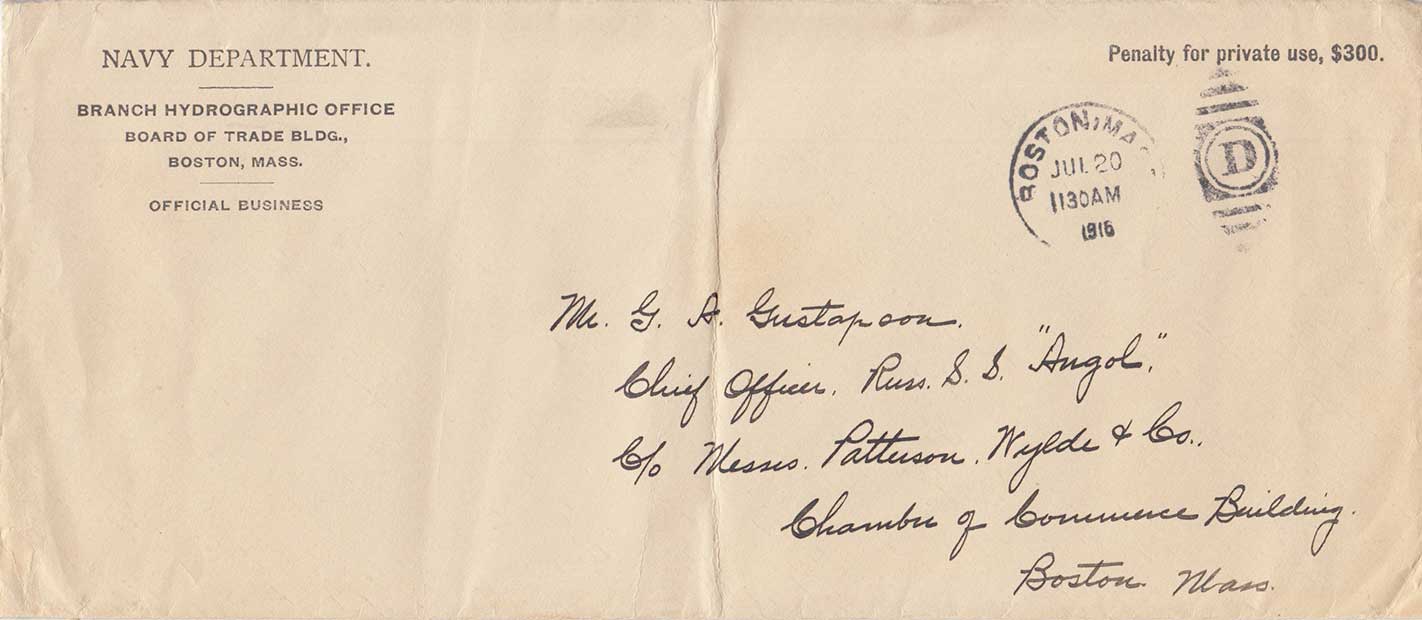 NAVY DEPARTMENT.
BRANCH HYDROGRAPHIC OFFICE
BOARD OF TRADE BLDG.,
BOSTON, MASS.
OFFICIAL BUSINESS
Penalty for private use, $300.
BOSTON, MA
JUL 20
1130AM
1916
D
Mr. G. A. Gustapson.
Chief Officer, Russ. S. S. "Angol,"
C/o Messrs. Patterson, Wylde & Co.,
Chamber of Commerce Building.
Boston Mass.